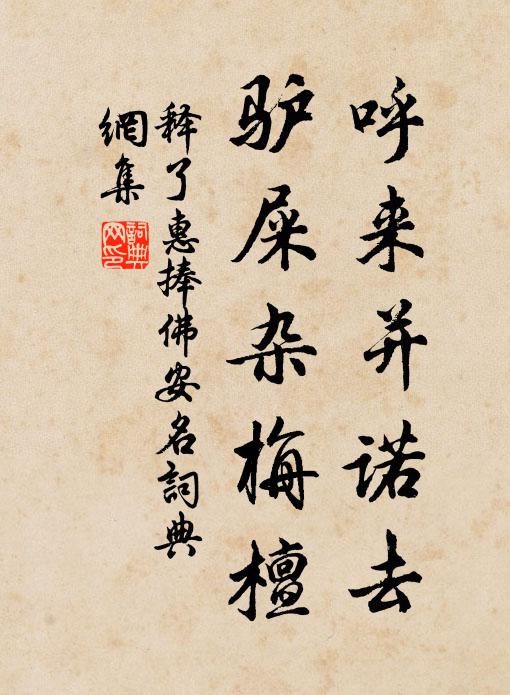 呼来并诺去
驴屎杂梅檀
释了惠捧佛安名詞典
網集
詞典
网印